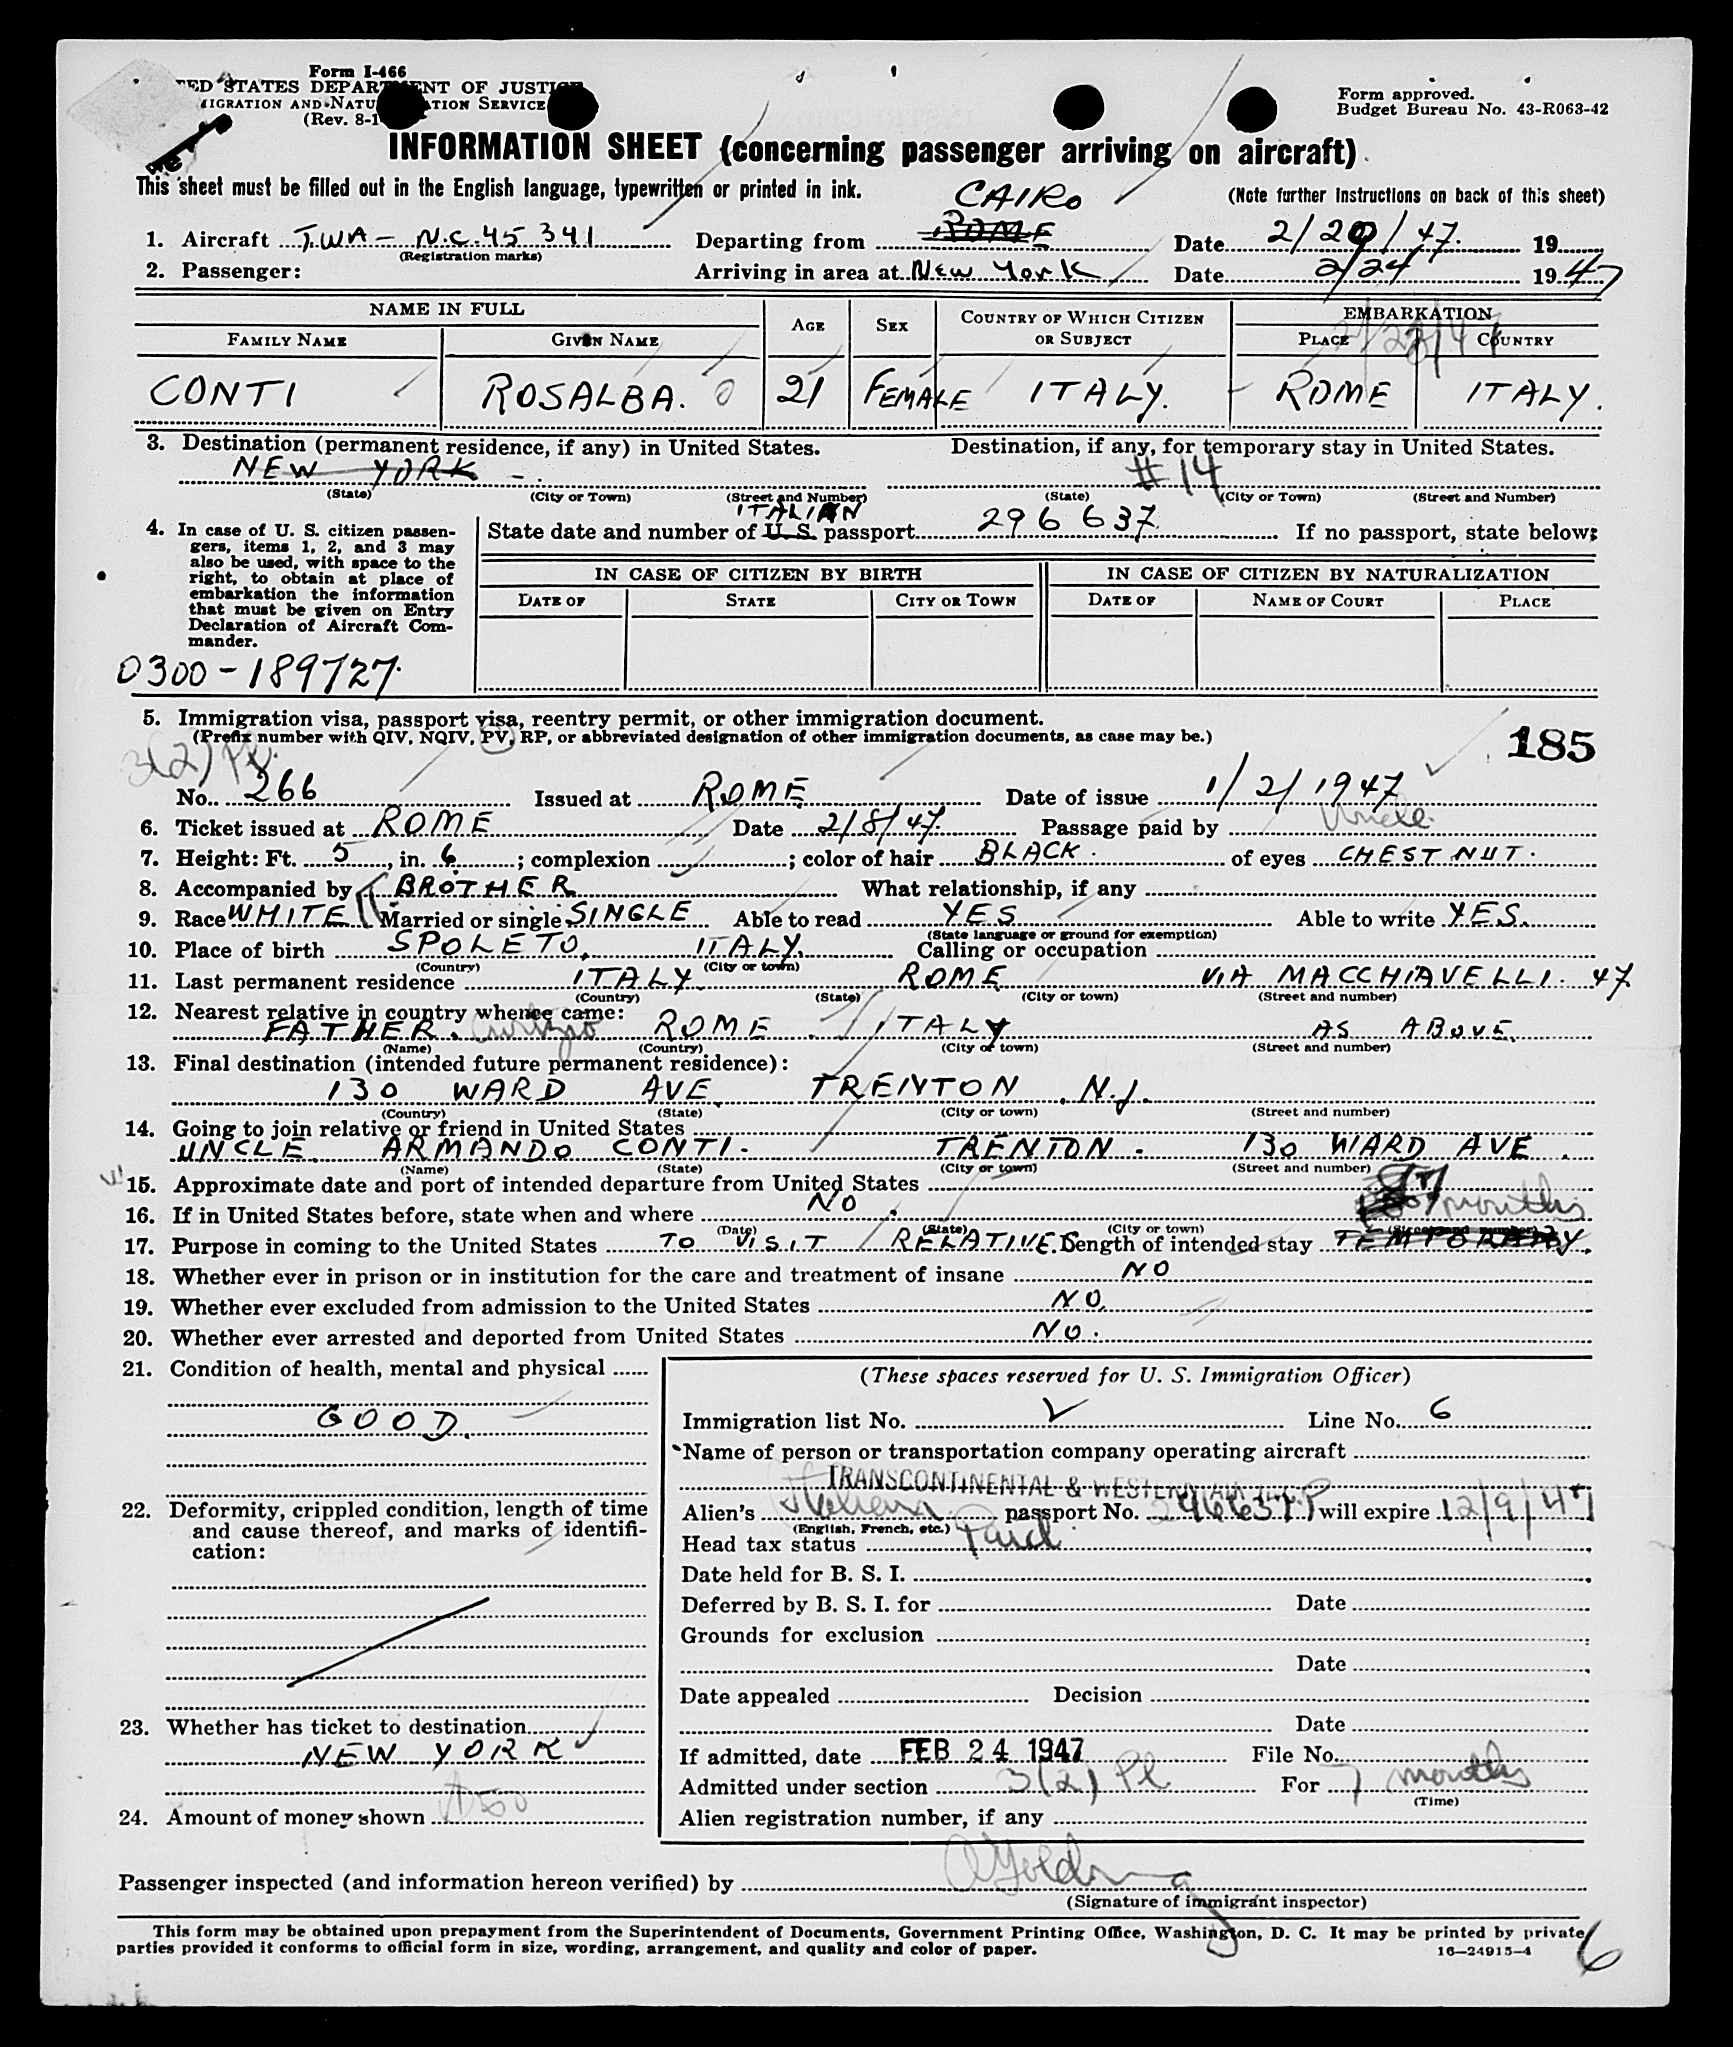 Form I-466
ED STATES DEPARTMENT OF JUSTICE
IGRATION AND NATURALIZATION SERVICE
(Rev. 8-1
Form approved.
Budget Bureau No. 43-R063-42
INFORMATION SHEET (concerning passenger arriving on aircraft)
This sheet must be filled out in the English language, typewritten or printed in ink.
(Note further instructions on back of this sheet)
CAIRO
1. Aircraft T.W.A - N.C. 45 341 Departing from ROME Date 2/20/47. 19
(Registration marks)
2. Passenger: Arriving in area at New York Date 2/24 1947
NAME IN FULL AGE SEX COUNTRY OF WHICH CITIZEN OR SUBJECT EMBARKATION
FAMILY NAME GIVEN NAME PLACE COUNTRY
CONTI ROSALBA. 21 FEMALE ITALY. ROME ITALY.
3. Destination (permanent residence, if any) in United States. Destination, if any, for temporary stay in United States.
NEW YORK - . #14
(State) (City or Town) (Street and Number) (State) (City or Town) (Street and Number)
ITALIAN
4. In case of U. S. citizen passengers, items 1, 2, and 3 may also be used, with space to the right, to obtain at place of embarkation the information that must be given on Entry Declaration of Aircraft Commander.
State date and number of U. S. passport 296 637. If no passport, state below:
IN CASE OF CITIZEN BY BIRTH IN CASE OF CITIZEN BY NATURALIZATION
DATE OF STATE CITY OR TOWN DATE OF NAME OF COURT PLACE
0300-189727.
5. Immigration visa, passport visa, reentry permit, or other immigration document.
(Prefix number with QIV, NQIV, PV, RP, or abbreviated designation of other immigration documents, as case may be.)
185
3(2) Pl.
No. 266 Issued at ROME Date of issue 1/2/1947
6. Ticket issued at ROME Date 2/8/47. Passage paid by Uncle.
7. Height: Ft. 5, in. 6; complexion ; color of hair BLACK. of eyes CHESTNUT.
8. Accompanied by BROTHER What relationship, if any
9. Race WHITE Married or single SINGLE Able to read YES Able to write YES.
(State language or ground for exemption)
10. Place of birth SPOLETO, ITALY. Calling or occupation
(Country) (City or town)
11. Last permanent residence ITALY ROME VIA MACCHIAVELLI. 47
(Country) (State) (City or town) (Street and number)
12. Nearest relative in country whence came:
FATHER. ROME. ITALY AS ABOVE.
(Name) (Country) (City or town) (Street and number)
13. Final destination (intended future permanent residence):
130 WARD AVE. TRENTON. N.J.
(Country) (State) (City or town) (Street and number)
14. Going to join relative or friend in United States
UNCLE. ARMANDO CONTI. TRENTON. 130 WARD AVE.
(Name) (State) (City or town) (Street and number)
15. Approximate date and port of intended departure from United States
16. If in United States before, state when and where NO. months
(Date) (State) (City or town) (Street and number)
17. Purpose in coming to the United States TO VISIT RELATIVES Length of intended stay TEMPORARY.
18. Whether ever in prison or in institution for the care and treatment of insane NO
19. Whether ever excluded from admission to the United States NO.
20. Whether ever arrested and deported from United States NO.
21. Condition of health, mental and physical
GOOD.
22. Deformity, crippled condition, length of time and cause thereof, and marks of identification:
23. Whether has ticket to destination
NEW YORK
24. Amount of money shown 50
(These spaces reserved for U. S. Immigration Officer)
Immigration list No. V Line No. 6
Name of person or transportation company operating aircraft
TRANSCONTINENTAL & WESTERN AIR INC.
Alien's Italian passport No. 296637P will expire 12/9/47
(English, French, etc.)
Head tax status Paid
Date held for B. S. I.
Deferred by B. S. I. for Date
Grounds for exclusion
Date
Date appealed Decision
Date
If admitted, date FEB 24 1947 File No.
Admitted under section 3(2) Pl For 7 months
(Time)
Alien registration number, if any
Passenger inspected (and information hereon verified) by
(Signature of immigrant inspector)
This form may be obtained upon prepayment from the Superintendent of Documents, Government Printing Office, Washington, D. C. It may be printed by private
parties provided it conforms to official form in size, wording, arrangement, and quality and color of paper.
16-24915-4
6